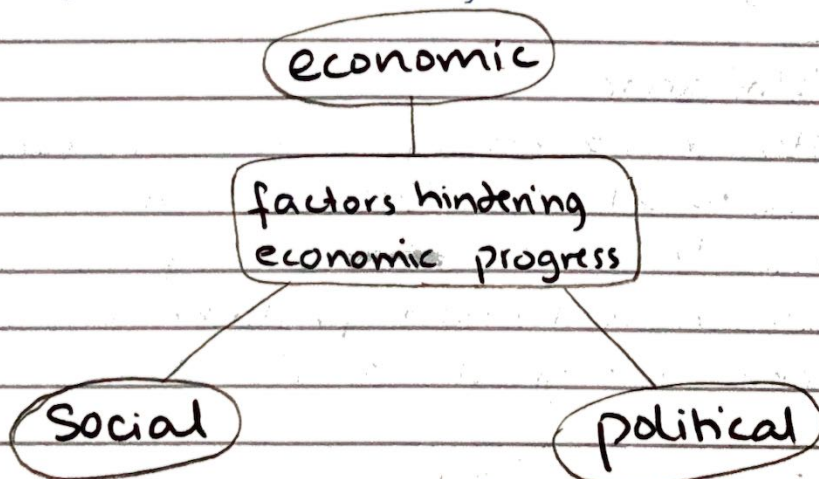 economic
factors hindering
economic progress
social
political